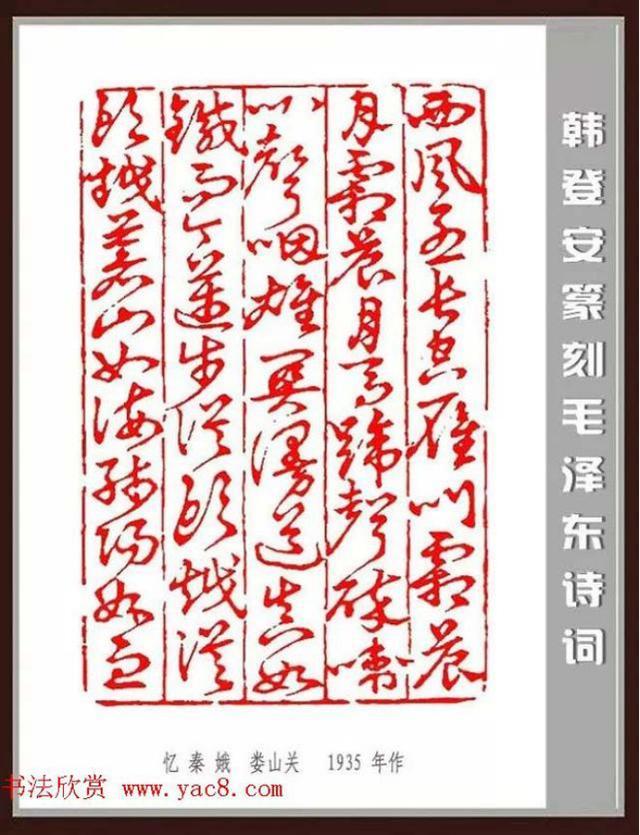 西風烈長空雁叫霜晨
月霜晨月馬蹄聲碎喇
叭聲咽雄關漫道真如
鐵而今邁步從頭越從
頭越蒼山如海殘陽如血
韩登安篆刻毛泽东诗词
忆秦娥 娄山关 1935 年作
书法欣赏 www.yac8.com